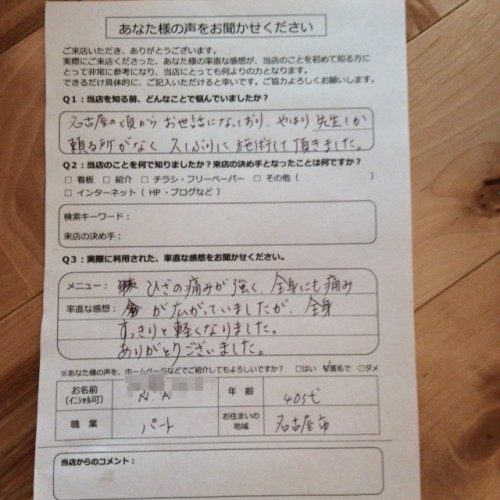 あなた様の声をお聞かせください
ご来店いただき、ありがとうございます。
実際にご来店くださった、あなた様の率直な感想が、当店のことを初めて知る方に
とって非常に参考になり、当店にとっても何よりの力となります。
できるだけ具体的に、ご記入いただけると幸いです。ご協力よろしくお願いします。
Q1：当店を知る前、どんなことで悩んでいましたか？
名古屋の頃からお世話になっており、やはり先生しか
頼る所がなく久しぶりに施術して頂きました。
Q2：当店のことを何で知りましたか？来店の決め手となったことは何ですか？
□ 看板 □ 紹介 □ チラシ・フリーペーパー □ その他（ ）
□ インターネット（ HP・ブログなど ）
検索キーワード：
来店の決め手：
Q3：実際に利用された、率直な感想をお聞かせください。
メニュー： ひざの痛みが強く、全身にも痛み
率直な感想： が広がっていましたが、全身
すっきりと軽くなりました。
ありがとうございました。
※あなた様の声を、ホームページなどでご紹介してもよろしいですか？ □はい ☑匿名で □ダメ
お名前 (イニシャル可) N.N 年 齢 40代
職 業 パート お住まいの地域 名古屋市
当店からのコメント：